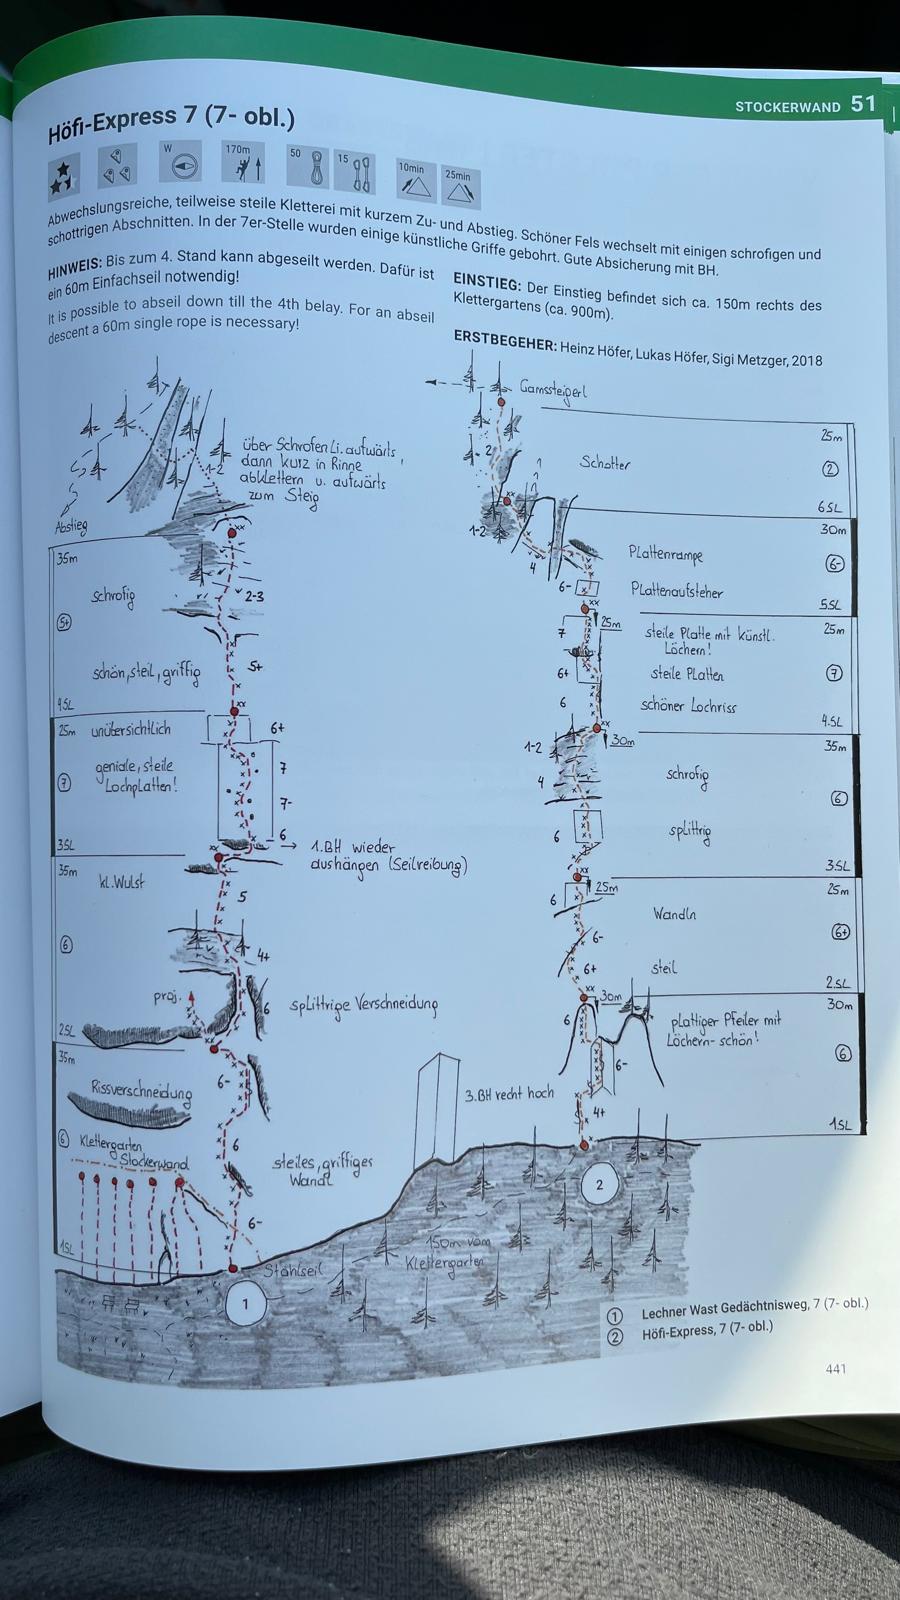 STOCKERWAND 51
Höfi-Express 7 (7- obl.)
W
170m
50
15
10min
25min
Abwechslungsreiche, teilweise steile Kletterei mit kurzem Zu- und Abstieg. Schöner Fels wechselt mit einigen schrofigen und
schottrigen Abschnitten. In der 7er-Stelle wurden einige künstliche Griffe gebohrt. Gute Absicherung mit BH.
HINWEIS: Bis zum 4. Stand kann abgeseilt werden. Dafür ist
ein 60m Einfachseil notwendig!
It is possible to abseil down till the 4th belay. For an abseil
descent a 60m single rope is necessary!
EINSTIEG: Der Einstieg befindet sich ca. 150m rechts des
Klettergartens (ca. 900m).
ERSTBEGEHER: Heinz Höfer, Lukas Höfer, Sigi Metzger, 2018
über Schrofen Li. aufwärts,
dann kurz in Rinne
abklettern u. aufwärts
zum Steig
1-2
Abstieg
xx
35m
schrofig
2-3
5+
schön, steil, griffig
5+
4.SL
xx
25m
unübersichtlich
6+
geniale, steile
Lochplatten!
7
7
7-
6
3.SL
xx
1.BH wieder
aushängen (Seilreibung)
35m
kl. Wulst
5
6
4+
proj.
6
splittrige Verschneidung
2.SL
xx
35m
6-
Rissverschneidung
6
Klettergarten
Stockerwand
6
steiles, griffiges
Wandl
6-
1SL
Stahlseil
1
Gamssteigerl
25m
2
Schotter
2
6SL
xx
1-2
30m
Plattenrampe
4
6-
6-
Plattenaufsteher
5.SL
xx
25m
25m
7
steile Platte mit künstl.
Löchern!
6+
steile Platten
7
6
schöner Lochriss
4.SL
xx
30m
1-2
35m
4
schrofig
6
6
splittrig
3.SL
xx
25m
25m
6
Wandln
6+
6-
6+
steil
2.SL
xx
30m
30m
6
plattiger Pfeiler mit
Löchern- schön!
6
6-
3.BH recht hoch
4+
1.SL
2
150m vom
Klettergarten
1 Lechner Wast Gedächtnisweg, 7 (7- obl.)
2 Höfi-Express, 7 (7- obl.)
441